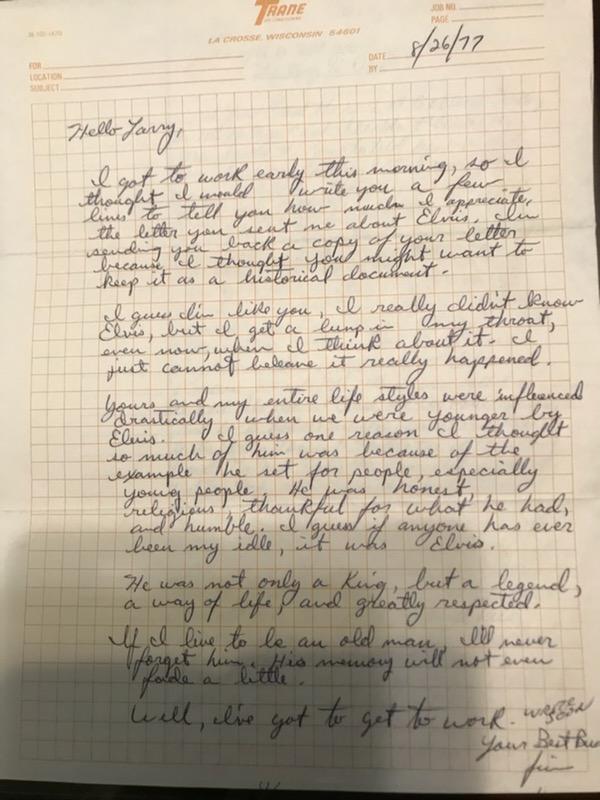 TRANE
AIR CONDITIONING
LA CROSSE, WISCONSIN 54601
JOB NO.
PAGE
FOR
LOCATION
SUBJECT
DATE 8/26/77
BY
Hello Larry,
I got to work early this morning, so I
thought I would write you a few
lines to tell you how much I appreciate
the letter you sent me about Elvis. I'm
sending you back a copy of your letter
because I thought you might want to
keep it as a historical document.
I guess I'm like you, I really didn't know
Elvis, but I get a lump in my throat,
even now, when I think about it. I
just cannot beleave it really happened.
Yours and my entire life styles were influenced
drastically when we were younger by
Elvis. I guess one reason I thought
so much of him was because of the
example he set for people, especially
young people. He was honest,
religious, thankful for what he had,
and humble. I guess if anyone has ever
been my idle, it was Elvis.
He was not only a King, but a legend,
a way of life, and greatly respected.
If I live to be an old man, I'll never
forget him. His memory will not even
fade a little.
Well, I've got to get to work. WRITE
SOON
Your Best Bud
Jim